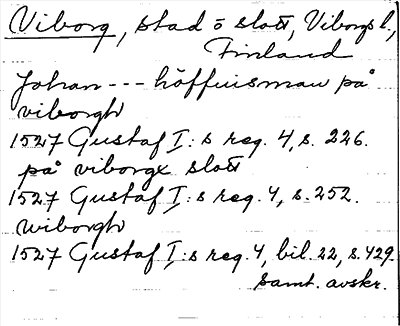 Viborg, stad o slott, Viborgs l.,
Finland
Johan --- höffuisman på
viborgh
1527 Gustaf I:s reg. 4, s. 226.
på viborgx slott
1527 Gustaf I:s reg. 4, s. 252.
wiborgh
1527 Gustaf I:s reg. 4, bil. 22, s. 429.
samt. avskr.